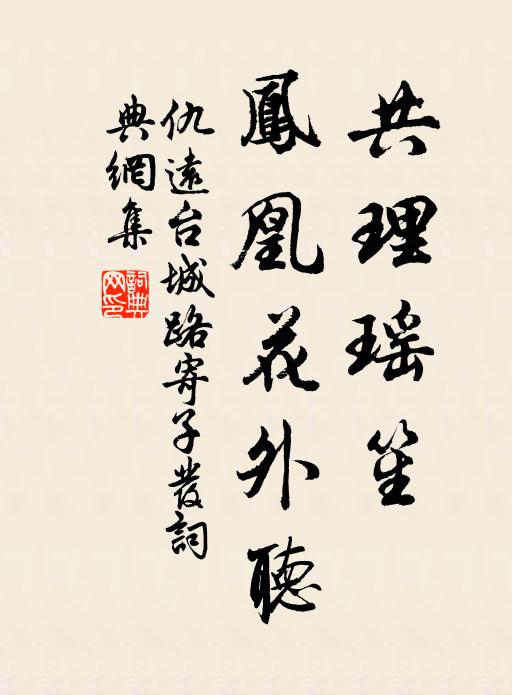 共理瑶笙
鳳凰花外聽
仇遠台城路寄子發詞
典網集
詞典網印